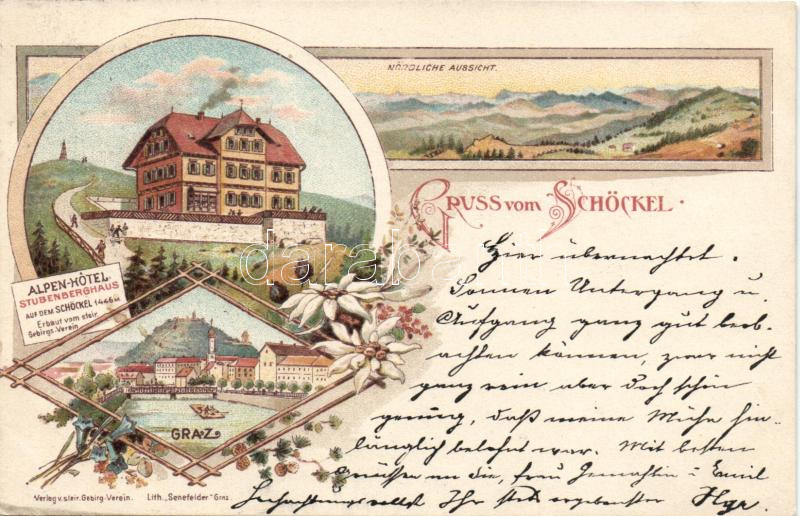 NÖRDLICHE AUSSICHT.
GRUSS vom SCHÖCKEL.
ALPEN-HÔTEL
STUBENBERGHAUS
AUF DEM SCHÖCKEL 1446 M
Erbaut vom steir.
Gebirgs-Verein
GRAZ
Hier übernachtet.
Sonnen Untergang u
Aufgang ganz gut beob-
achten können, zwar nicht
ganz rein aber doch schön
genung, daß meine Mühe hin-
länglich belohnt war. Mit besten
Grüssen an die, Frau Gemahlin u Emil
Hochachtungsvollst Ihr stets ergebenster
Verlag v. steir. Gebirg-Verein.
Lith. „Senefelder" Graz
darabanth